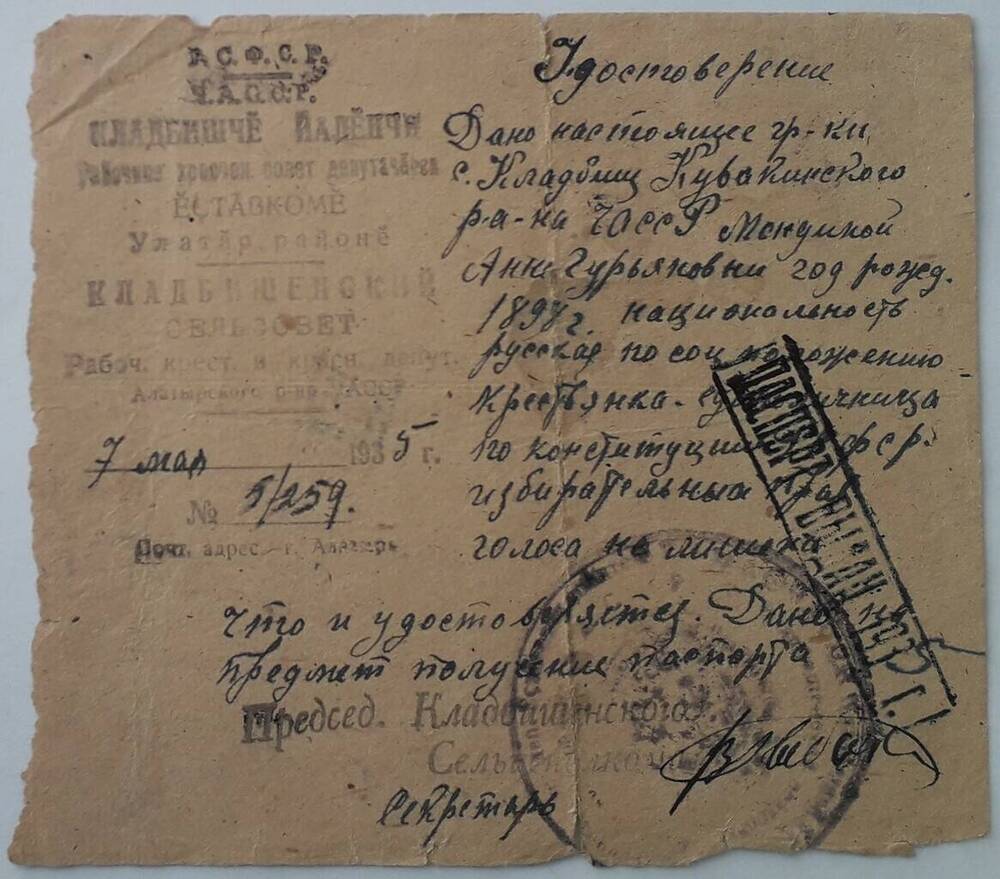 Р.С.Ф.С.Р.
Ч.А.С.С.Р.
КЛАДБИШЧĔ ЙАДĔПЧИ
Рабочнии хресчен совет депутачĕсен
ĔСТАВКОМĔ
Улатăр районĕ
КЛАДБИШЕНСКИЙ
СЕЛЬСОВЕТ
Рабоч. крест. и красн. депут.
Алатырского р-на ЧАССР
7 мая 1935 г.
№ 5/259.
Почт. адрес - г. Алатырь
Удостоверение
Дано настоящее гр-ки
с. Кладбищ Кувакинского
р-на ЧАССР
Анне Гурьяновни год рожд.
1897 г. национольность
русская по соц положению
Крестьянка-единоличница
по конституции РСФСР.
избирательных прав
голоса не лишена
Что и удостоверяется. Дано на
предмет получение паспорта
Председ. Кладбишенского
Сельисполкома
Секретарь
ПАСПОРТ ВЫДАН 193 г.